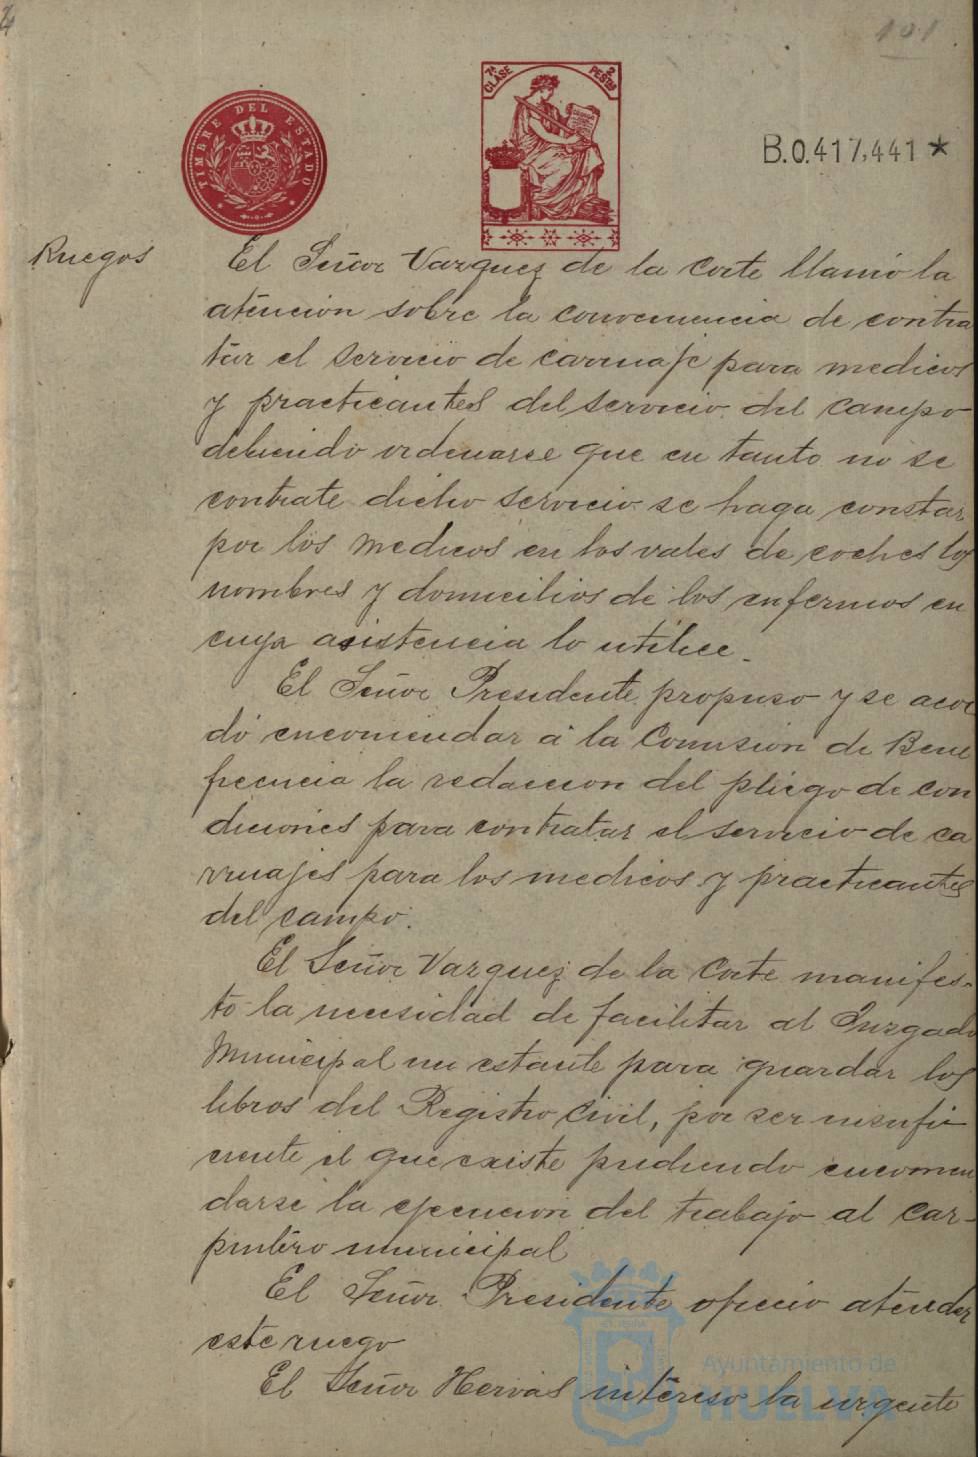 101
TIMBRE DEL ESTADO
7ª CLASE
2 PESTAS
B.0.417,441 *
Ruegos
El Señor Vazquez de la Corte llamó la
atención sobre la conveniencia de contra
tar el servicio de carruaje para medicos
y practicantes del servicio del campo
debiendo ordenarse que en tanto no se
contrate dicho servicio se haga constar
por los medicos en los vales de coches los
nombres y domicilios de los enfermos en
cuya asistencia lo utilice.
El Señor Presidente propuso y se acor
dó encomendar á la Comision de Bene
ficencia la redaccion del pliego de con
diciones para contratar el servicio de ca
rruajes para los medicos y practicantes
del campo.
El Señor Vazquez de la Corte manifes-
tó la necesidad de facilitar al Juzgado
Municipal un estante para guardar los
libros del Registro Civil, por ser insufi
ciente el que existe pudiendo encomen
darse la ejecucion del trabajo al car-
pintero municipal
El Señor Presidente ofreció atender
este ruego
El Señor Hervás interesó la urgente
Ayuntamiento de
HUELVA